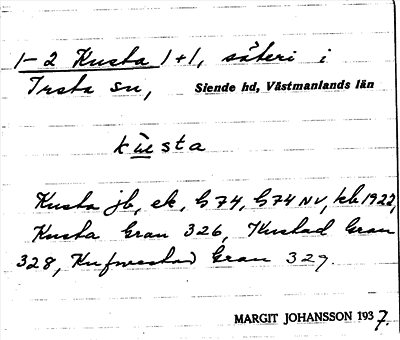 1-2 Kusta 1+1, säteri i
Irsta sn, Siende hd, Västmanlands län
kùsta
Kusta jb, ek, G74, G74 NV, kb 1922,
Kusta Grau 326, Kustad Grau
328, Grau 329
MARGIT JOHANSSON 1937.